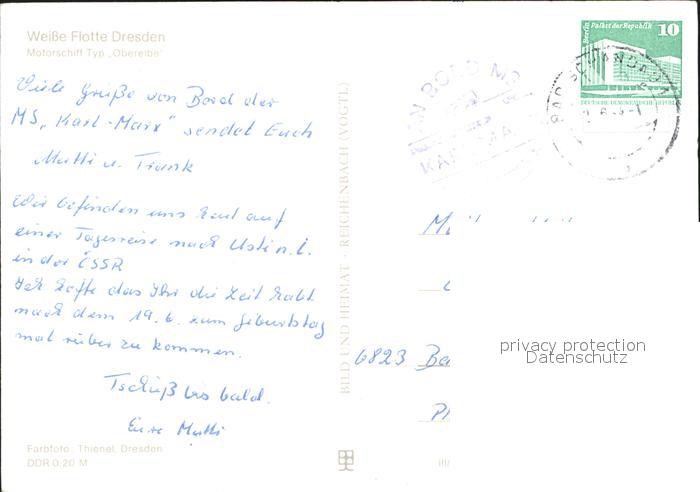 Weiße Flotte Dresden
Motorschiff Typ „Oberelbe"
Viele Grüße von Bord der
MS „Karl-Marx" sendet Euch
Mutti u. Frank
Wir befinden uns heut auf
einer Tagesreise nach Usti n. L.
in der ČSSR
Ich hoffe das Ihr die Zeit habt
nach dem 19. 6. zum Geburtstag
mal rüber zu kommen.
Tschüß bis bald.
Eure Mutti
Farbfoto: Thienel, Dresden
DDR 0,20 M
BILD UND HEIMAT · REICHENBACH (VOGTL)
AN BORD MS
KARL MA
Berlin Palast der Republik 10
DEUTSCHE DEMOKRATISCHE REPUBLIK
BAD SCHANDAU 1
6823 Ba
III/
privacy protection
Datenschutz